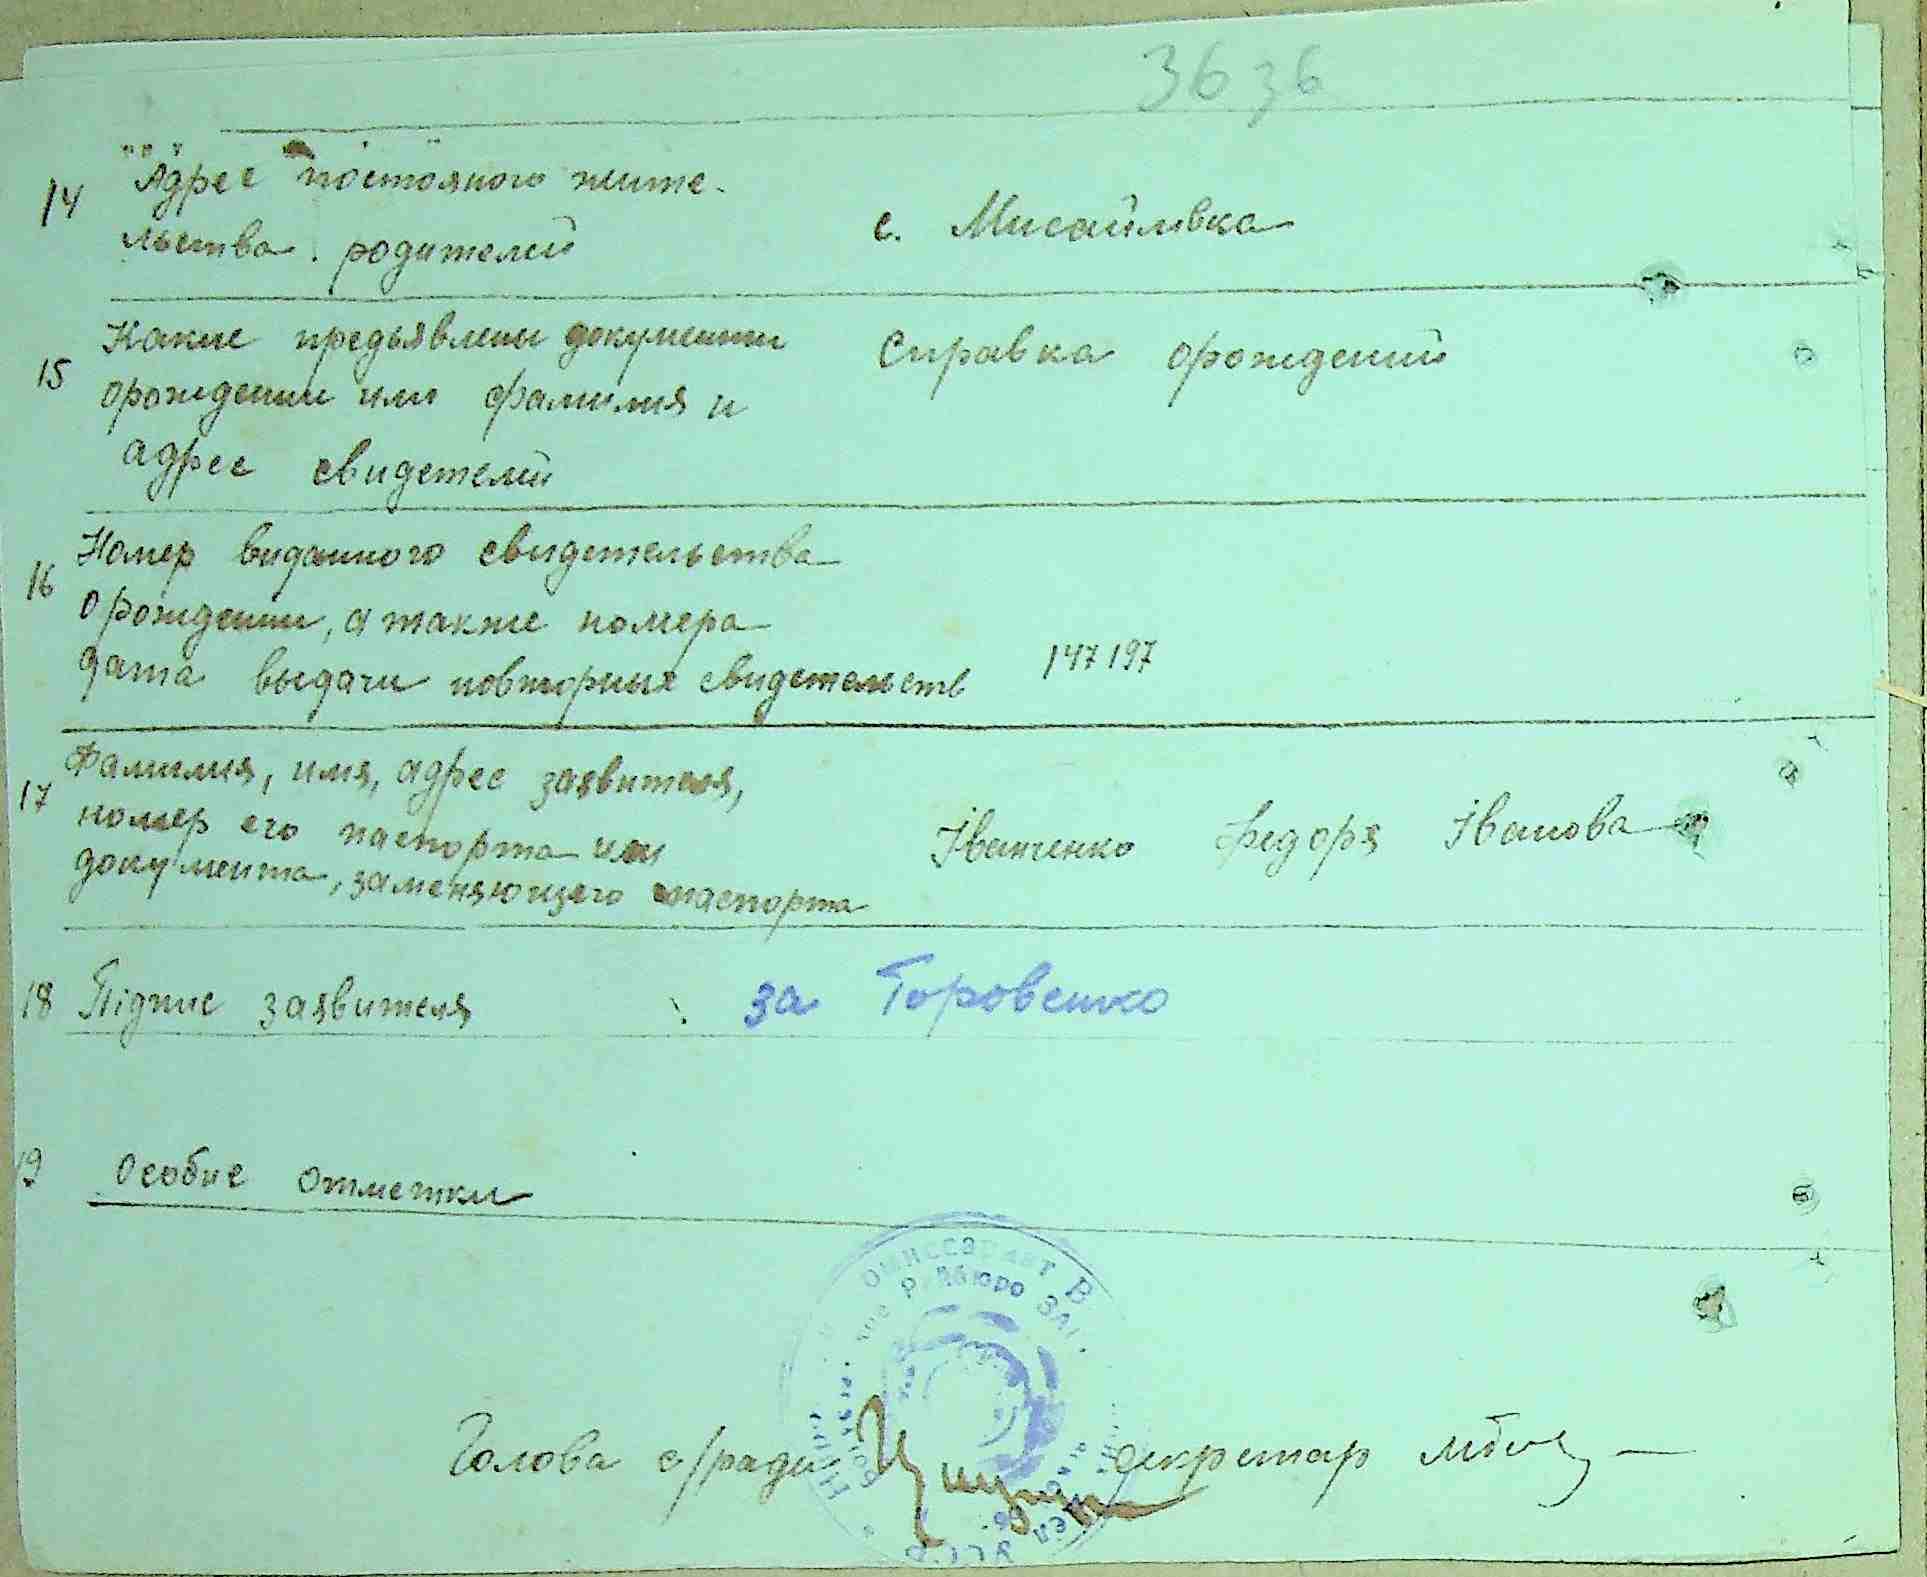 36 36
14 Адрес постояного жите-
льства родителей
с. Мисайлівка
15 Какие предьявлены документи
орождении или фамилия и
адрес свидетелей
Справка орождений
16 Номер виданного свидетельства
орождении, а также номера
дата выдачи повторных свидетельств
147197
17 Фамилия, имя, адрес заявителя,
номер его паспорта или
документа, заменяющего паспорта
Іванченко Федоря Іванова
18 Підпис заявителя
за Горовенко
19 Особие отметки
омиссариат В
ное Райбюро ЗАГ
УССР
Голова с/ради
секретар